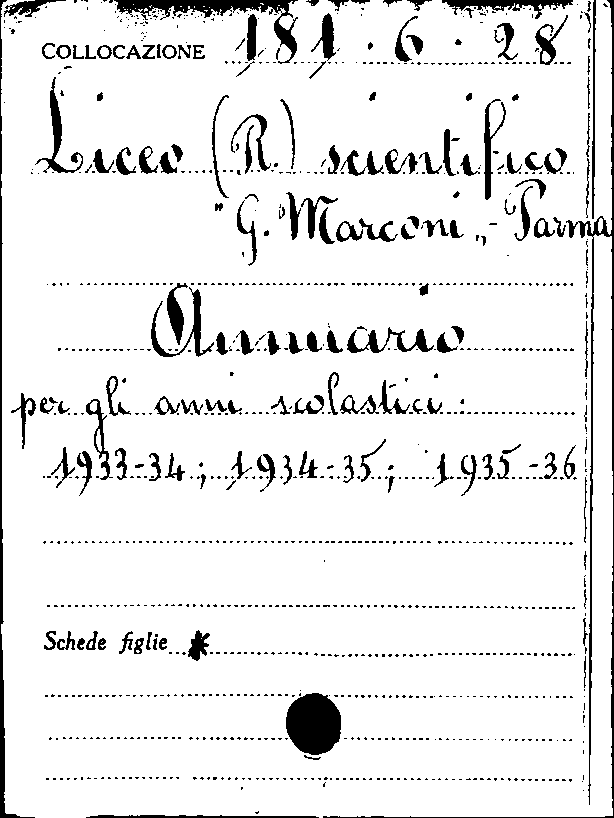 COLLOCAZIONE 181.6.28
Liceo (R.) scientifico
"G. Marconi„ - Parma
Annuario
per gli anni scolastici:
1933-34; 1934-35; 1935-36
Schede figlie *